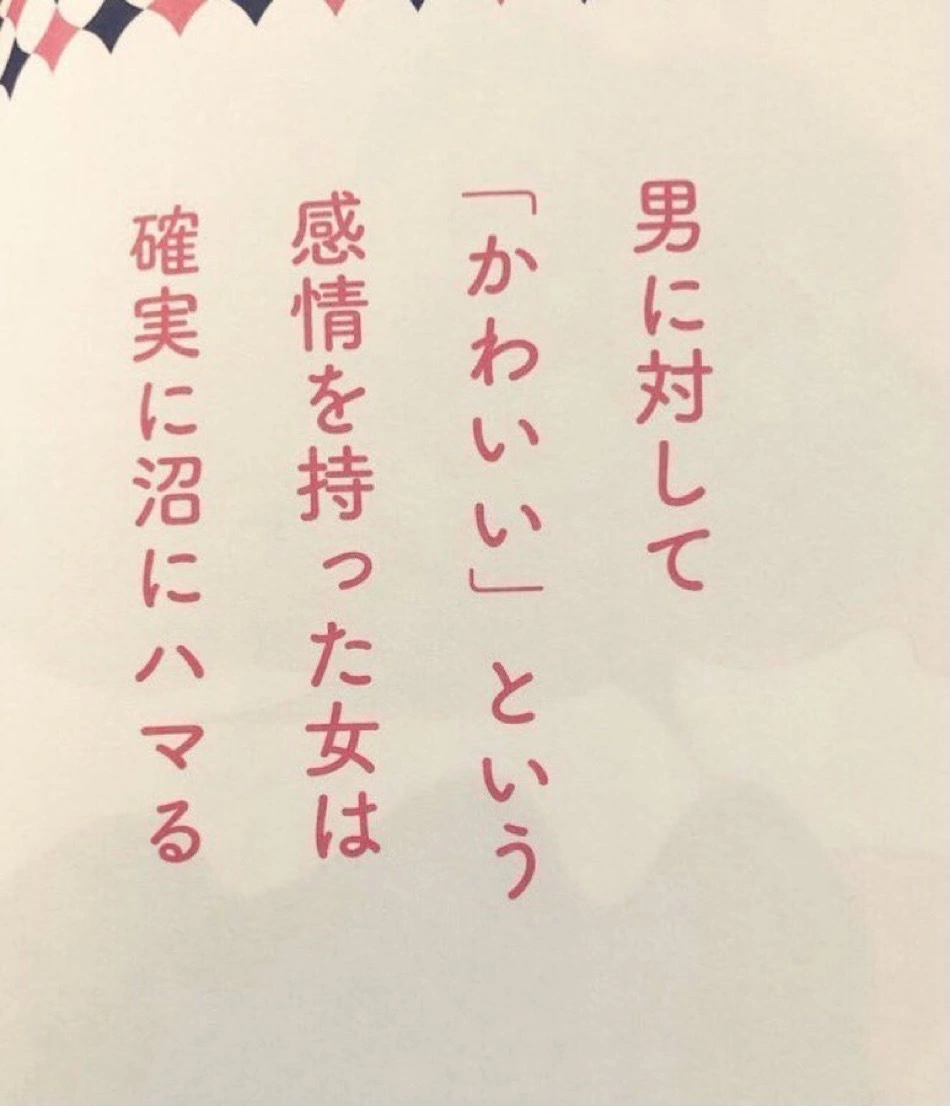 男に対して
「かわいい」という
感情を持った女は
確実に沼にハマる